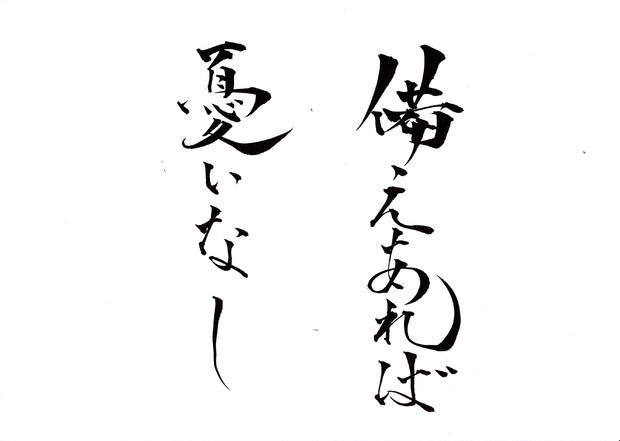 備えあれば
憂いなし